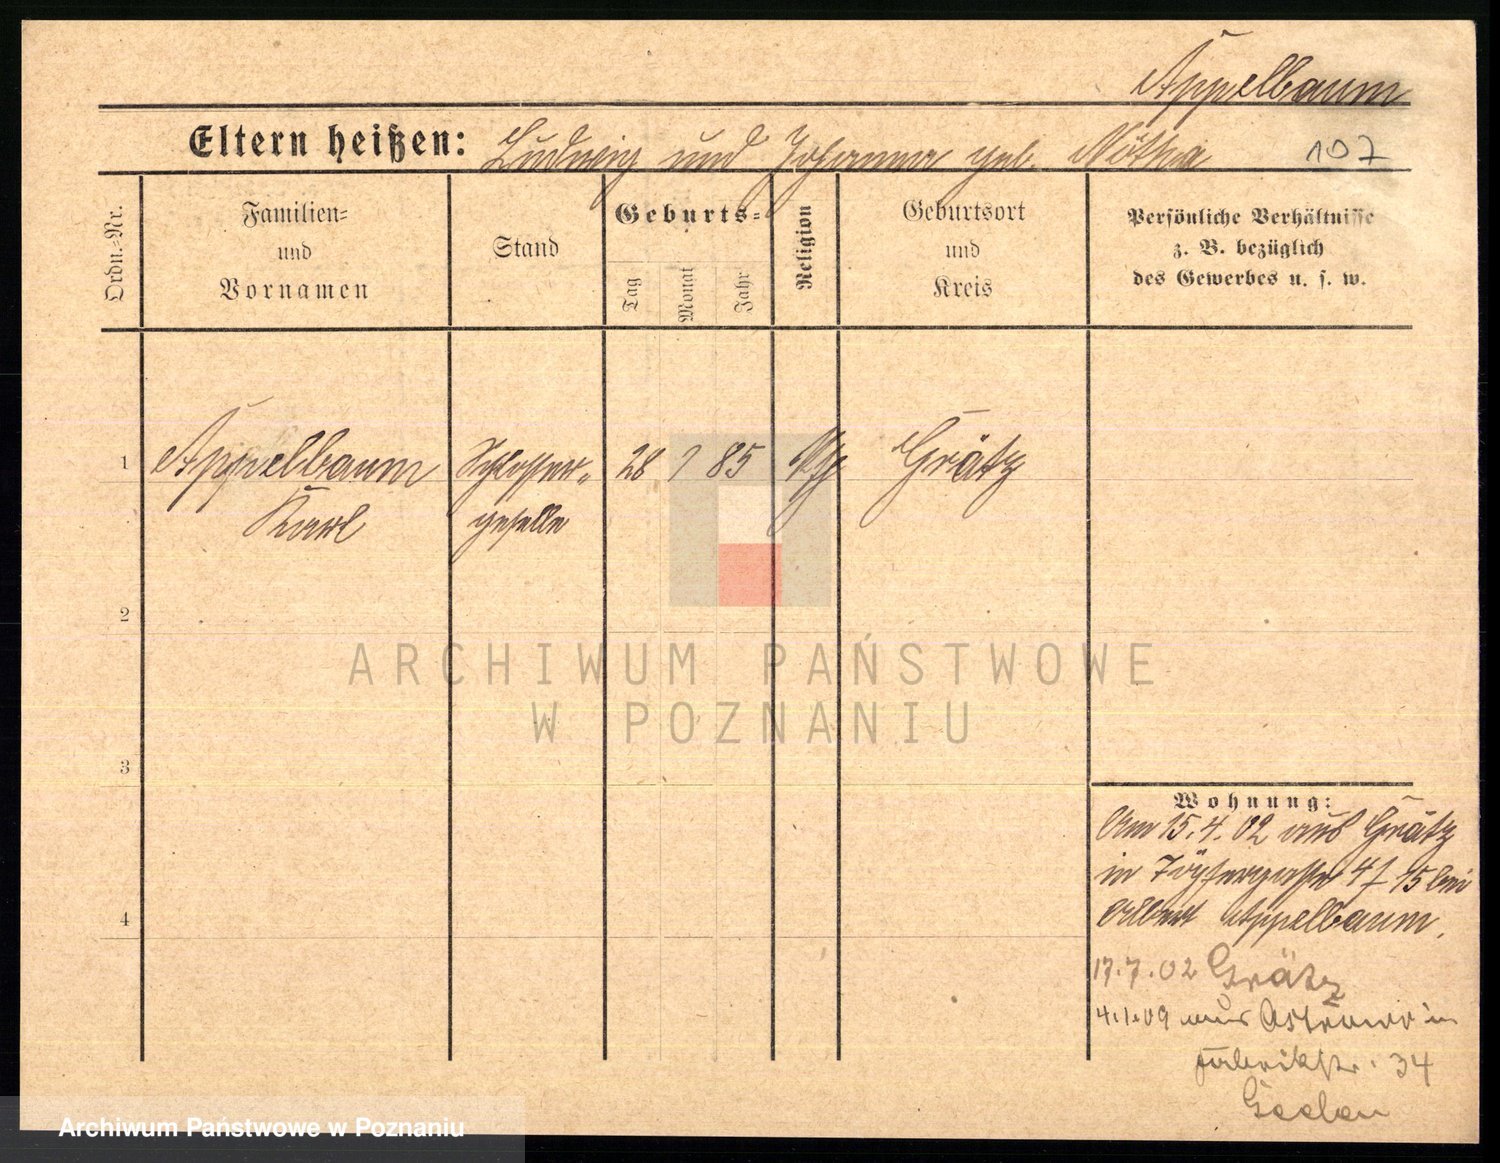 Appelbaum
Eltern heißen: Ludwig und Johanna geb.
107
Ordn.=Nr.
Familien=
und
Vornamen
Stand
Geburts=
Tag
Monat
Jahr
Religion
Geburtsort
und
Kreis
Persönliche Verhältnisse
z. B. bezüglich
des Gewerbes u. s. w.
1
Appelbaum
Karl
Schlosser-
geselle
28 7 85
Grätz
2
ARCHIWUM PAŃSTWOWE
W POZNANIU
3
4
Wohnung:
Am 15.4.02 aus Grätz
in Töpfergasse 4/5 bei
Albert Appelbaum.
17.7.02 Grätz
4.1.09 aus in
Fabrikstr. 34
Archiwum Państwowe w Poznaniu